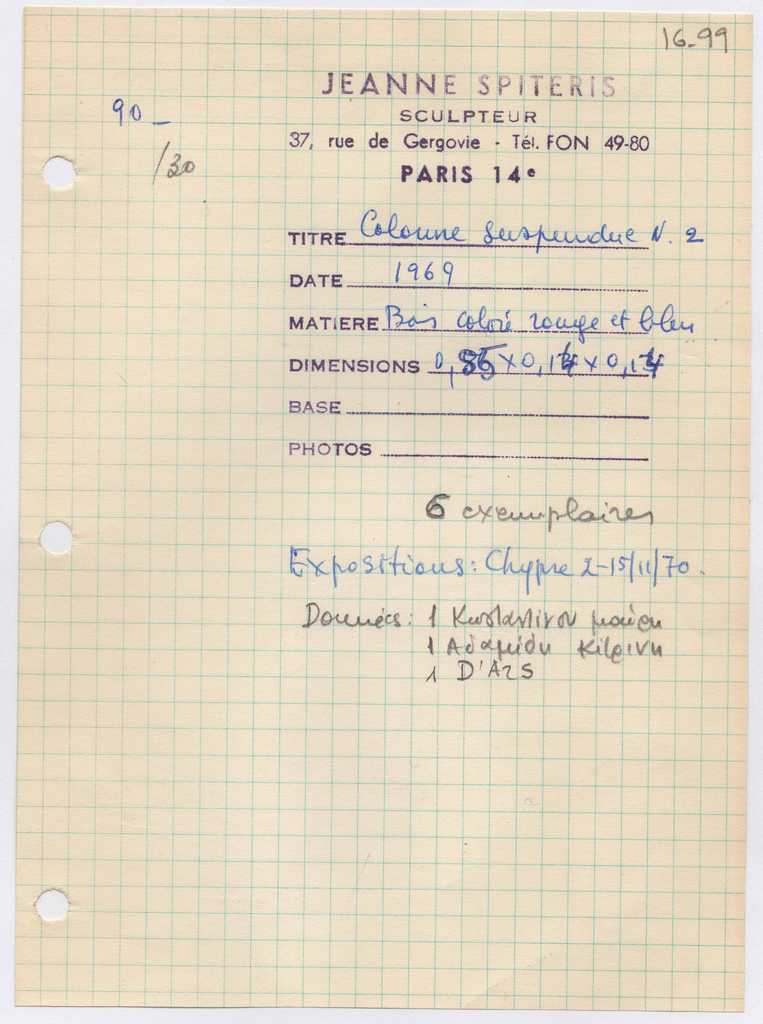 16-99
JEANNE SPITERIS
SCULPTEUR
90_
37, rue de Gergovie - Tél. FON 49-80
/30
PARIS 14e
TITRE Colonne suspendue N. 2
DATE 1969
MATIERE Bois coloré rouge et bleu
DIMENSIONS 0,85 x 0,14 x 0,14
BASE
PHOTOS
6 exemplaires
Expositions: Chypre 2-15/11/70.
Données: 1 Κωσταντίνου μαύρη
1 Αδαμίδη Κίτρινη
1 D'ARS